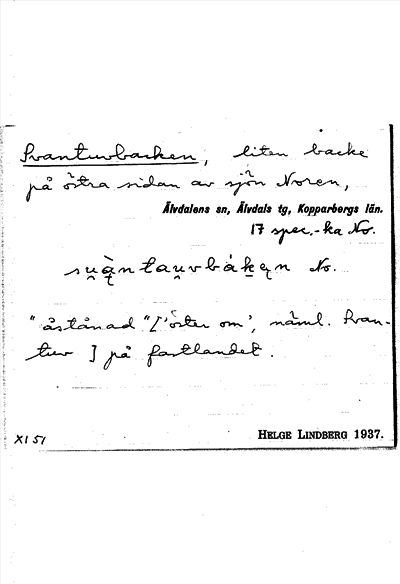 Svantuvbacken, liten backe
på östra sidan av sjön Noren,
Älvdalens sn, Älvdals tg, Kopparbergs län.
17 spec.-ka No.
No.
"åstånad" ['öster om', näml. Svan-
tuv] på fastlandet.
XI 51
HELGE LINDBERG 1937.